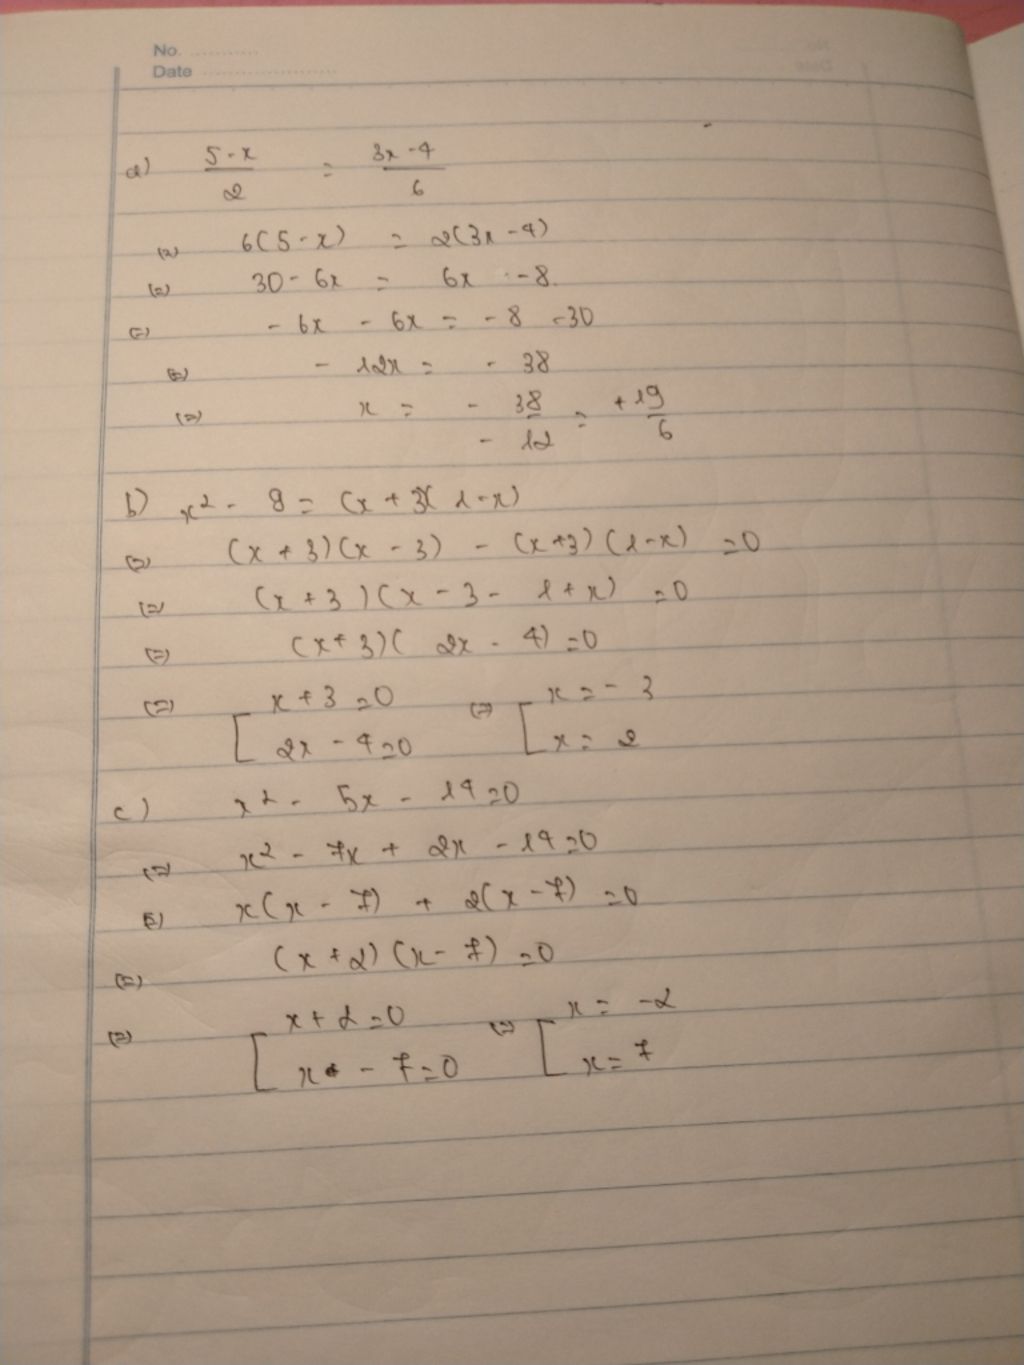 No.
Date
a) (5-x)/2 = (3x-4)/6
(=) 6(5-x) = 2(3x-4)
(=) 30 - 6x = 6x - 8
(=) - 6x - 6x = - 8 - 30
(=) - 12x = - 38
(=) x = - 38/- 12 = + 19/6
b) x² - 9 = (x + 3)(1-x)
(=) (x + 3)(x - 3) - (x+3)(1-x) = 0
(=) (x + 3)(x - 3 - 1 + x) = 0
(=) (x + 3)(2x - 4) = 0
(=) [ x + 3 = 0 (=) [ x = - 3
2x - 4 = 0 x = 2
c) x² - 5x - 14 = 0
(=) x² - 7x + 2x - 14 = 0
(=) x(x - 7) + 2(x - 7) = 0
(=) (x + 2)(x - 7) = 0
(=) [ x + 2 = 0 (=) [ x = -2
x - 7 = 0 x = 7